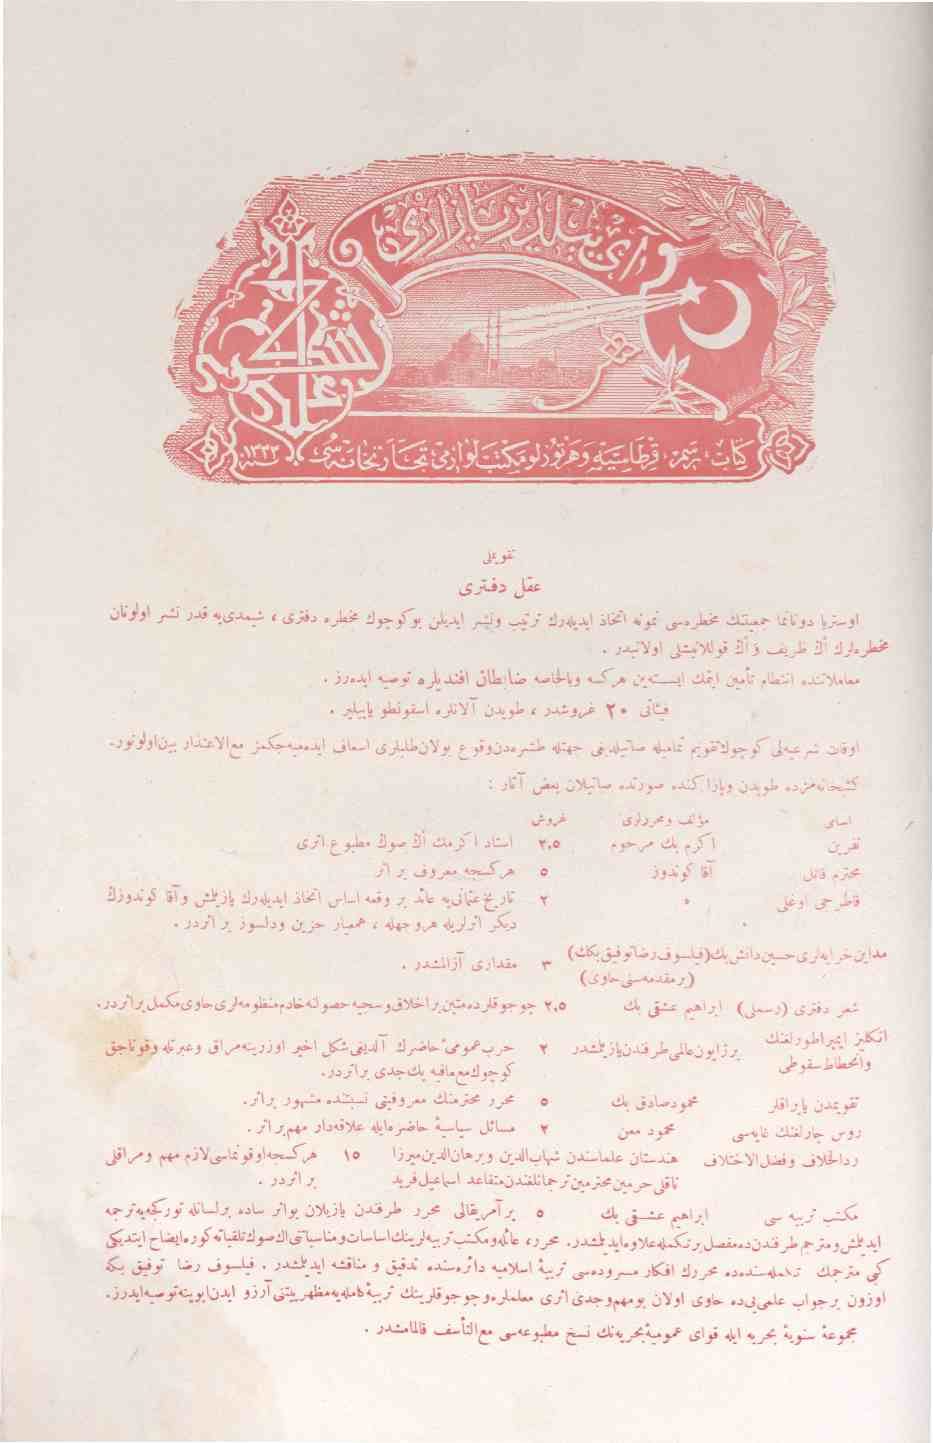 ییلدیز پازاری
علی شکری
کتاب، رسم، قرطاسیه و هر تورلو مکتب لوازمی تجارتخانه سی
سنه ۱۳۳۲
تقویملی
عقل دفتری
اوستریا دونانما جمعیتنك مخطره‌سی نمونه اتخاذ ایدیله‌رك ترتیب ونشر ایدیلن بو کوچوك مخطره دفتری ، شیمدی‌یه قدر نشر اولونان
مخطره‌لرك اڭ ظریف و اڭ قوللانیشلی اولانیدر .
معاملاتنده انتظام تأمین ایتمك ایسته‌ین هرکسه وبالخاصه ضابطان افندیلره توصیه ایده‌رز .
فیئاتی ۲۰ غروشدر ، طوپدن آلانلره اسقونطو یاپیلیر .
اوقات شرعیه‌لی کوچوك تقویم تمامیله صاتیلدیغی جهتله طشره‌دن وقوع بولان طلبلری اسعاف ایده‌میه‌جکمز مع‌الاعتذار بیان اولونور.
کتبخانه‌مزده طوپدن وپاراکنده صورتده صاتیلان بعض آثار :
اسامی مؤلف ومحررلری غروش
نفرین اکرم بك مرحوم ۲،۵ استاد اکرمك اڭ صوڭ مطبوع اثری
محترم قاتل آقا کوندوز ۵ هرکسجه معروف بر اثر
قاطرجی اوغلی » ۲ تاریخ عثمانی‌یه عائد بر وقعه اساس اتخاذ ایدیله‌رك یازیلمش و آقا کوندوزك
دیکر اثرلریله هر وجهله ، همعیار حزین ودلسوز بر اثردر .
مداین خرابه‌لری حسین دانش بك (فیلسوف رضا توفیق بكك) ۳ مقداری آزالمشدر .
(بر مقدمه‌سنی حاوی)
شعر دفتری (رسملی) ابراهیم عشقی بك ۲،۵ چوجوقلرده متین بر اخلاق و سجیه حصولنه خادم منظومه‌لری حاوی مکمل بر اثردر.
انکلیز ایمپراطورلغنك بر ژاپون عالمی طرفندن یازیلمشدر ۲ حرب عمومی‌ٔ حاضرك آلدیغی شکل اخیر اوزرینه مراق وعبرتله وقوناجق
وانحطاط سقوطی کوچوك مع‌مافیه پك جدی بر اثردر.
تقویمدن یاپراقلر محمود صادق بك ۵ محرر محترمنك معروفیتی نسبتنده مشهور بر اثر.
روس چارلغنك غایه‌سی محمود معن ۲ مسائل سیاسیهٔ حاضره‌ایله علاقه‌دار مهم بر اثر .
ردالخلاف وفضل الاختلاف هندستان علماسندن شهاب‌الدین وبرهان‌الدین میرزا ۱۵ هرکسجه اوقونماسی لازم مهم ومراقلی
ناقلی حرمین محترمین ترجمانلغندن متقاعد اسماعیل فرید بر اثردر .
مکتب تربیه سی ابراهیم عشقی بك ۵ بر آمریقالی محرر طرفندن یازیلان بو اثر ساده بر لسانله تورکجه‌یه ترجمه
ایدیلمش ومترجم طرفندن ده مفصل بر تکمله علاوه ایدیلمشدر. محرر، عائله ومکتب تربیه‌لرینك اساسات ومناسباتنی اڭ صوڭ تلقیاته کوره ایضاح ایتدیکی
کبی مترجمك تکمله‌سنده‌ده محررك افکار مسروده‌سی تربیهٔ اسلامیه دائره‌سنده تدقیق و مناقشه ایدیلمشدر . فیلسوف رضا توفیق بكه
اوزون بر جواب علمی‌یی ده حاوی اولان بو مهم وجدی اثری معلملره وچوجوقلرینك تربیهٔ کامله‌یه مظهریتنی آرزو ایدن ابوینه توصیه ایدرز.
مجموعهٔ سنویهٔ بحریه ایله قوای عمومیهٔ بحریه‌نك نسخ مطبوعه‌سی مع‌التأسف قالمامشدر .